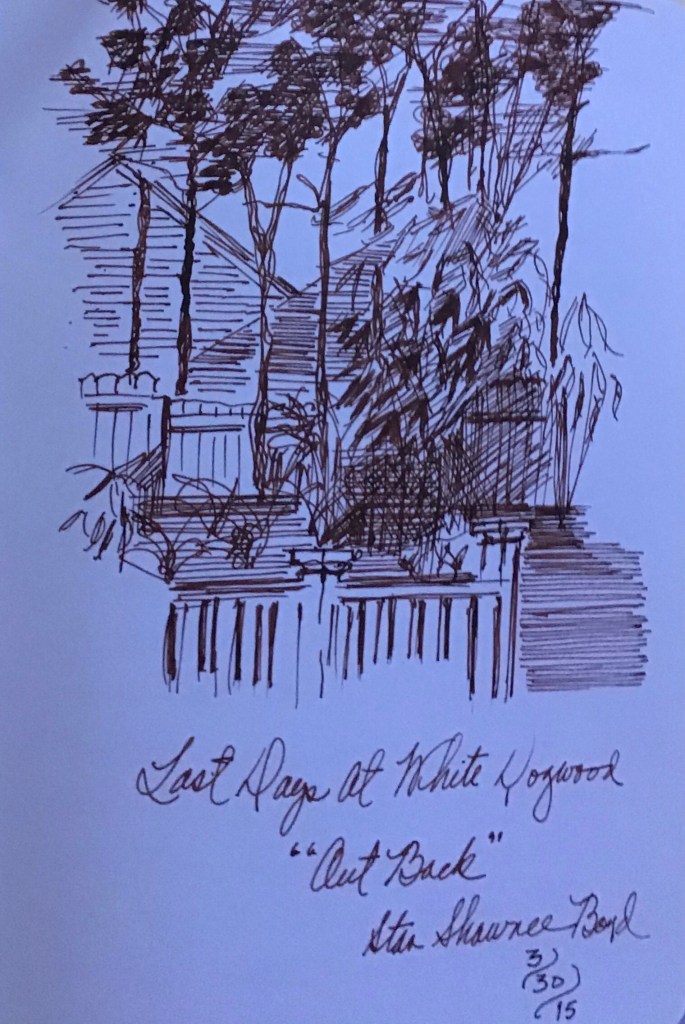 Last Days At White Dogwood
"Out Back"
Stan Shawnee Boyd
3/
30/
15